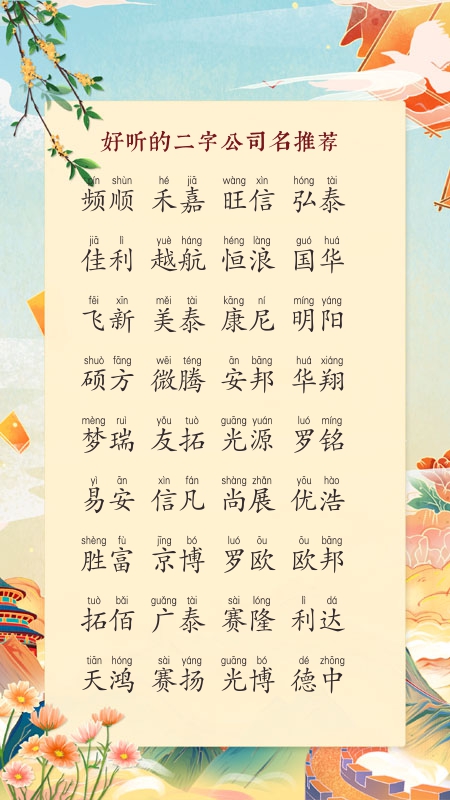 好听的二字公司名推荐
pín shùn hé jiā wàng xìn hóng tài
频顺 禾嘉 旺信 弘泰
jiā lì yuè háng héng làng guó huá
佳利 越航 恒浪 国华
fēi xīn měi tài kāng ní míng yáng
飞新 美泰 康尼 明阳
shuò fāng wēi téng ān bāng huá xiáng
硕方 微腾 安邦 华翔
mèng ruì yǒu tuò guāng yuán luó míng
梦瑞 友拓 光源 罗铭
yì ān xìn fán shàng zhǎn yōu hào
易安 信凡 尚展 优浩
shèng fù jīng bó luó ōu ōu bāng
胜富 京博 罗欧 欧邦
tuò bǎi guǎng tài sài lóng lì dá
拓佰 广泰 赛隆 利达
tiān hóng sài yáng guāng bó dé zhōng
天鸿 赛扬 光博 德中